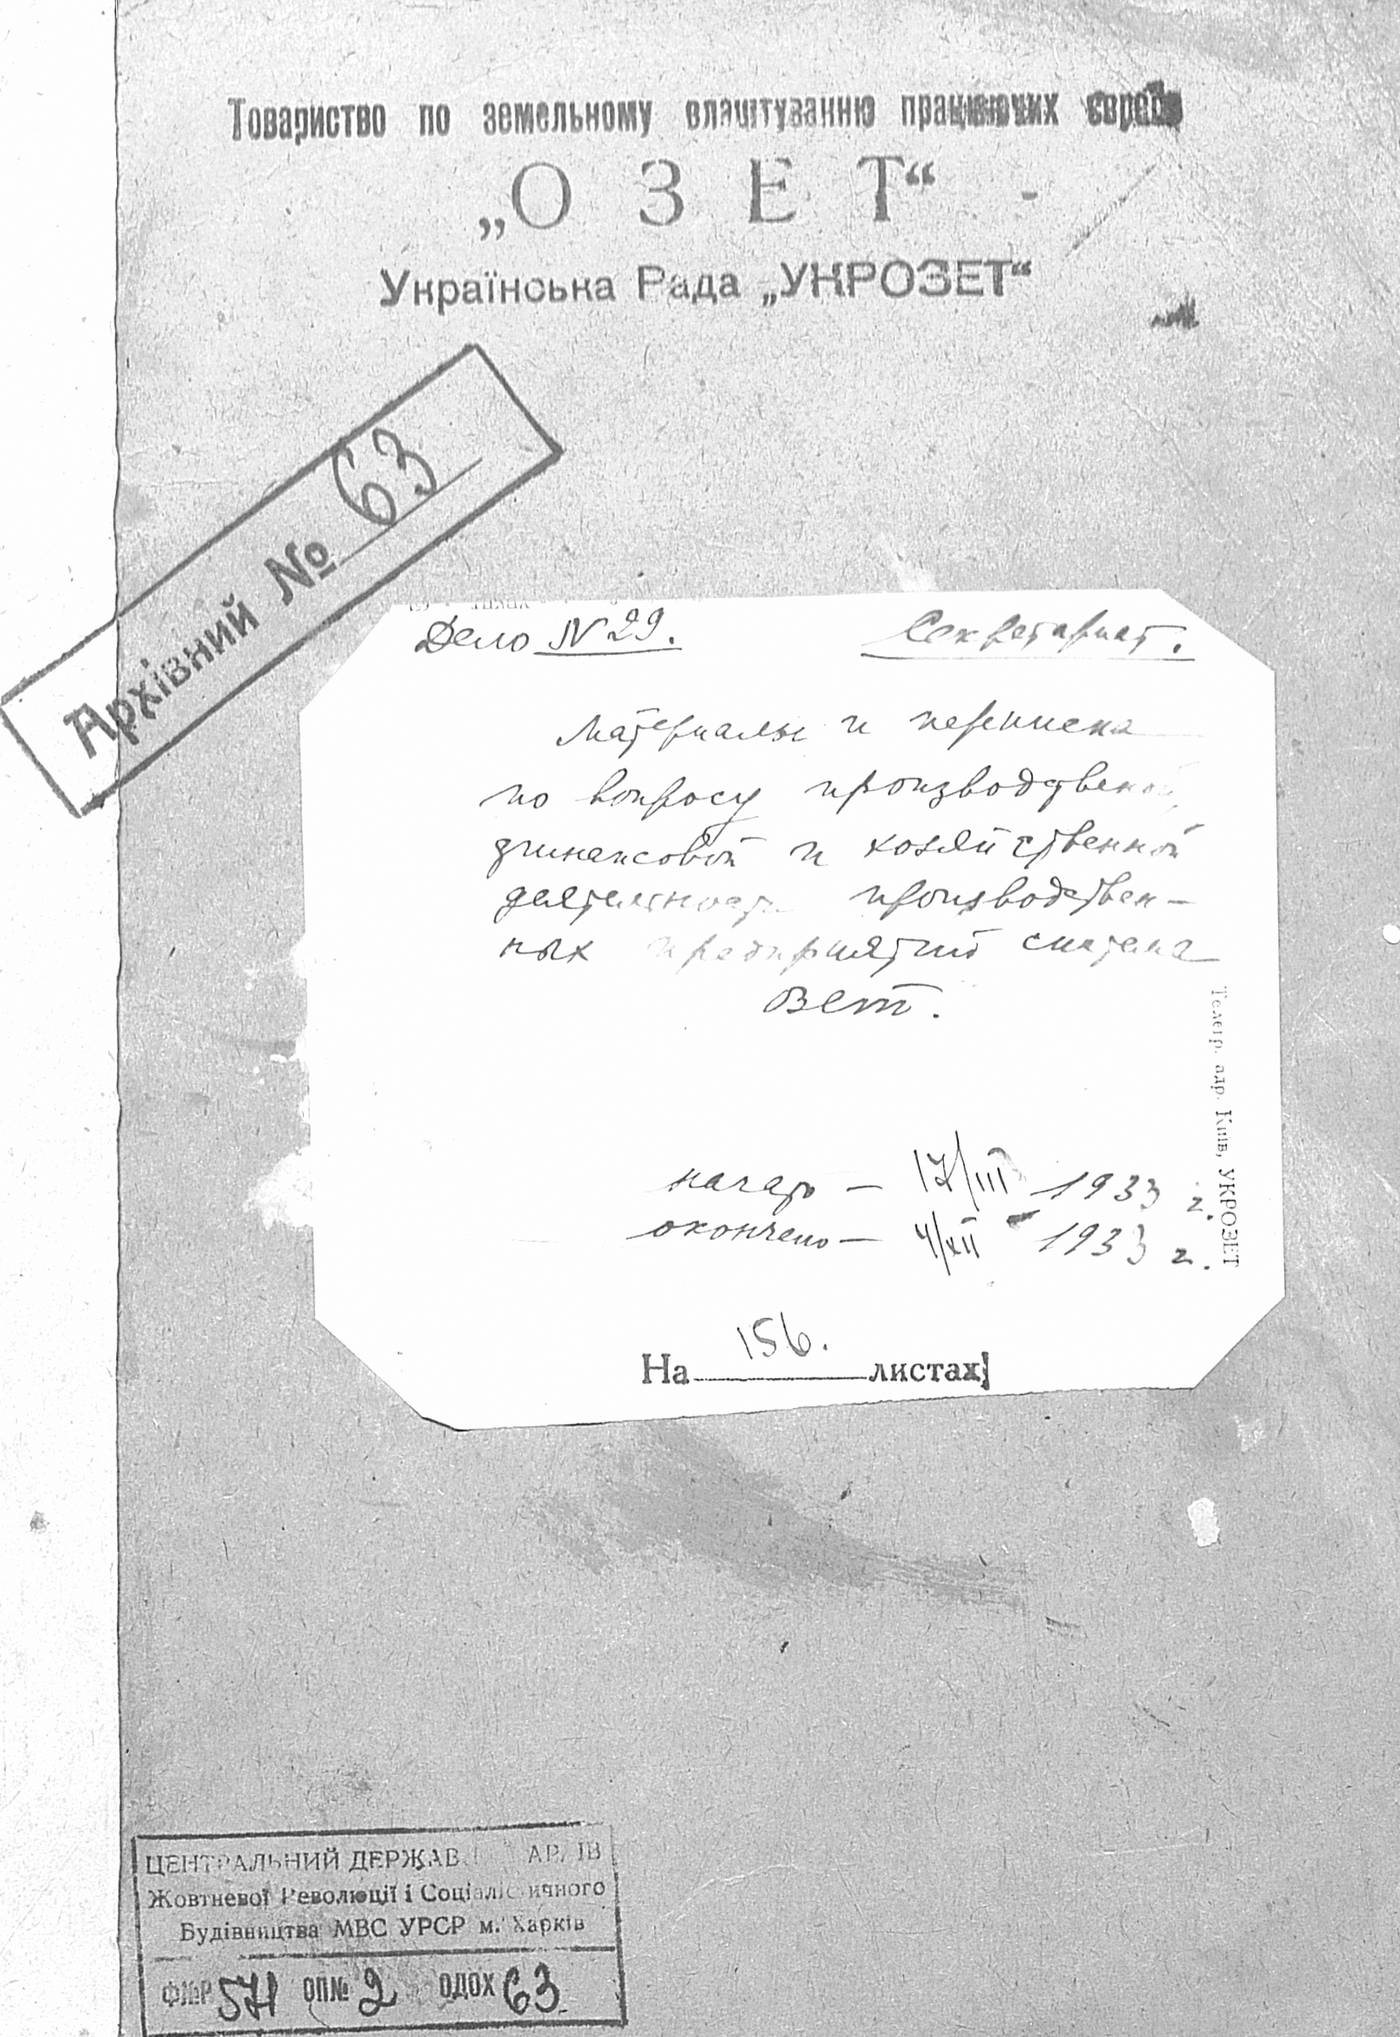 Товариство по земельному влаштуванню працюючих євреїв
„О З Е Т“
Українська Рада „УКРОЗЕТ“
Архівний № 63
Дело N 29.
Секретариат.
Материалы и переписка
по вопросу производственой,
финансовой и хозяйственной
деятельности производствен-
ных предприятий системы
Озет.
Телегр. адр. Київ, УКРОЗЕТ
начато – 17/III 1933 г.
окончено – 4/XII 1933 г.
На 156. листах
ЦЕНТРАЛЬНИЙ ДЕРЖАВ АРХІВ
Жовтневої Революції і Соціалістичного
Будівництва МВС УРСР м. Харків
Ф№Р 571 ОП№ 2 ОДОХ 63